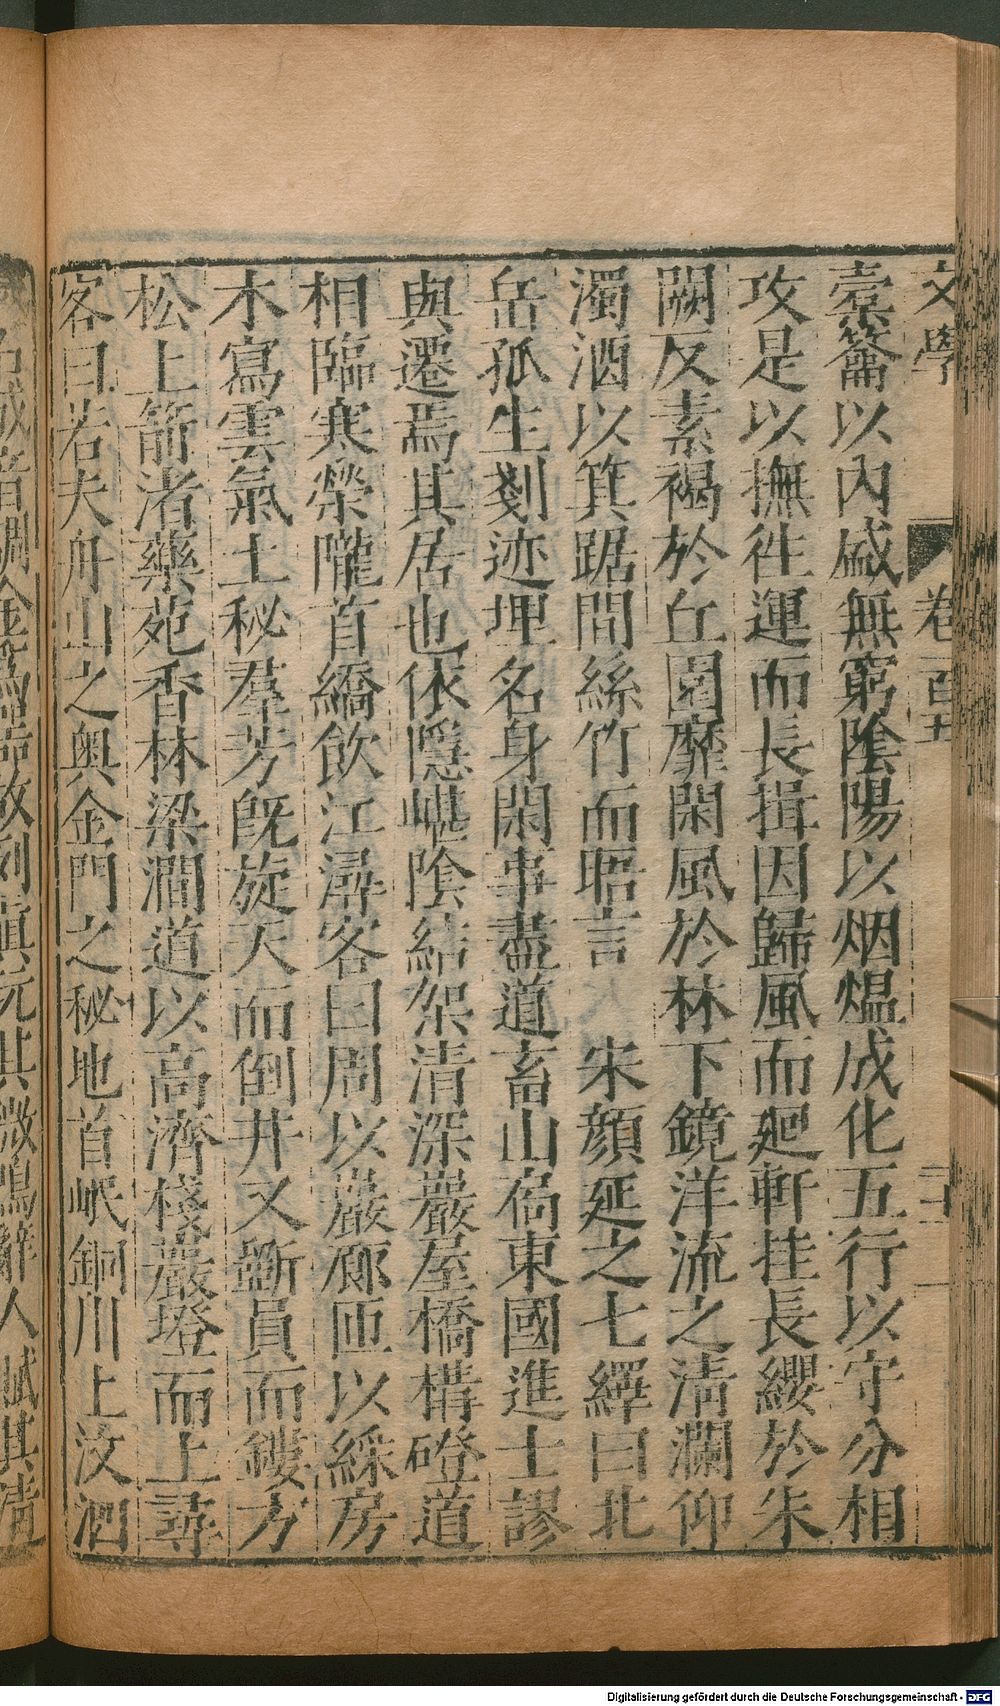 文學
卷百五
二十一
橐籥以內盛無窮陰陽以烟熅成化五行以守分相
攻是以撫往運而長揖因歸風而廻軒挂長纓於朱
闕反素褐於丘園靡閑風於林下鏡洋流之清瀾仰
濁酒以箕踞間絲竹而晤言 宋顏延之七繹曰北
岳孤生剗迹埋名身閑事盡道畜山扃東國進士謬
與遷焉其居也依隱𡾰陰結架清深巖屋橋構磴道
相臨寒榮隴首繑飲江潯客曰周以巖廊匝以綵房
木寫雲氣土秘羣芳旣旋天而倒井又斲員而鏤方
松上箭渚藥苑香林梁澗道以高濟棧巖墱而上尋
客曰若夫舟山之奧金門之秘地首岷銅川上汶泗
Digitalisierung gefördert durch die Deutsche Forschungsgemeinschaft - DFG